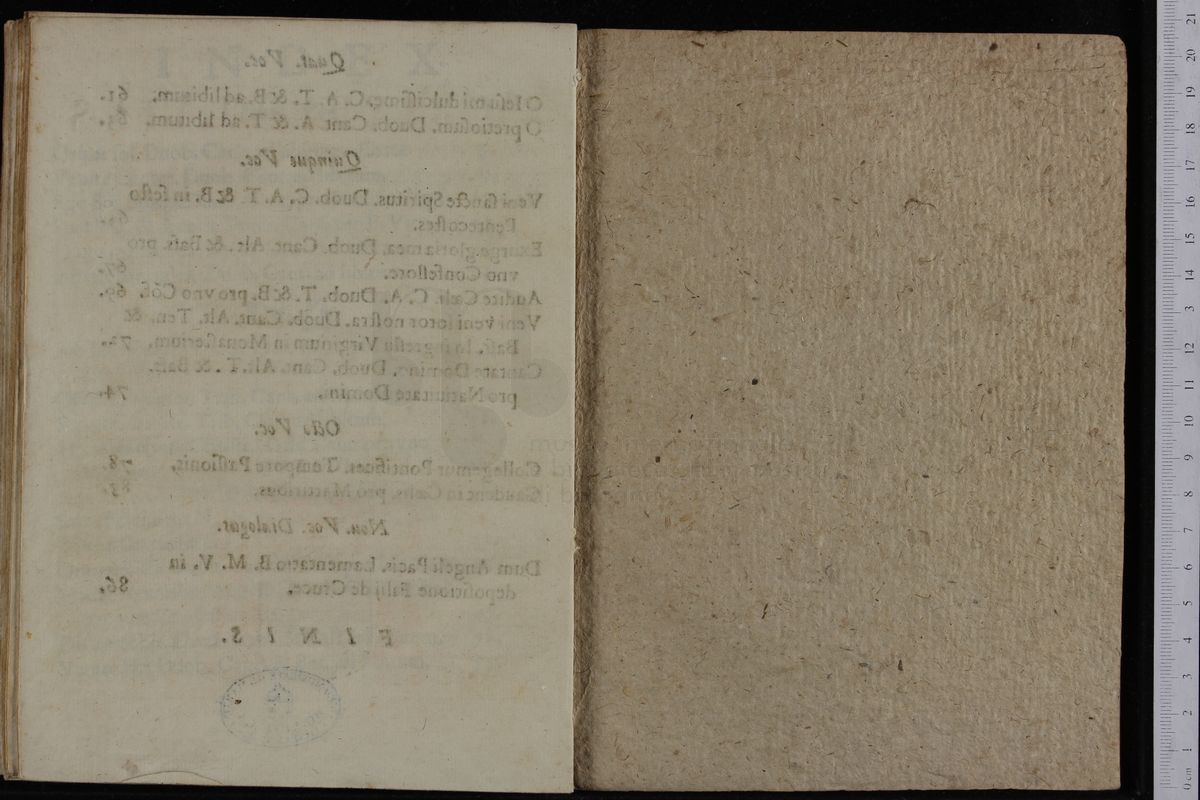 Quat. Voc.
O Iesu mi dulcissime, C. A. T. & B. ad libitum. 61.
O pretiosum. Duob. Cant. A. & T. ad libitum. 63.
Quinque Voc.
Veni sancte Spiritus. Duob. C. A. T. & B. in festo
Pentecostes.
Exurge gloria mea. Duob. Cant. Alt. & Bass. pro
vno Confessore. 67.
Audite Cæli. C. A. Duob. T. & B. pro vno Cōf. 69.
Veni veni soror nostra. Duob. Cant. Alt. Ten. &
Bass. In ingressu Virginum in Monasterium. 72.
Cantate Domino. Duob. Cant. Alt. T. & Bass.
pro Natiuitate Domini. 74.
Octo Voc.
Collegerunt Pontifices. Tempore Passionis, 78.
Gaudent in Cœlis. pro Martiribus. 83.
Nou. Voc. Dialogus.
Dum Angeli Pacis. Lamentatio B. M. V. in
depositione Filij de Cruce, 86.
F I N I S.
0 cm 1 2 3 4 5 6 7 8 9 10 11 12 13 14 15 16 17 18 19 20 21